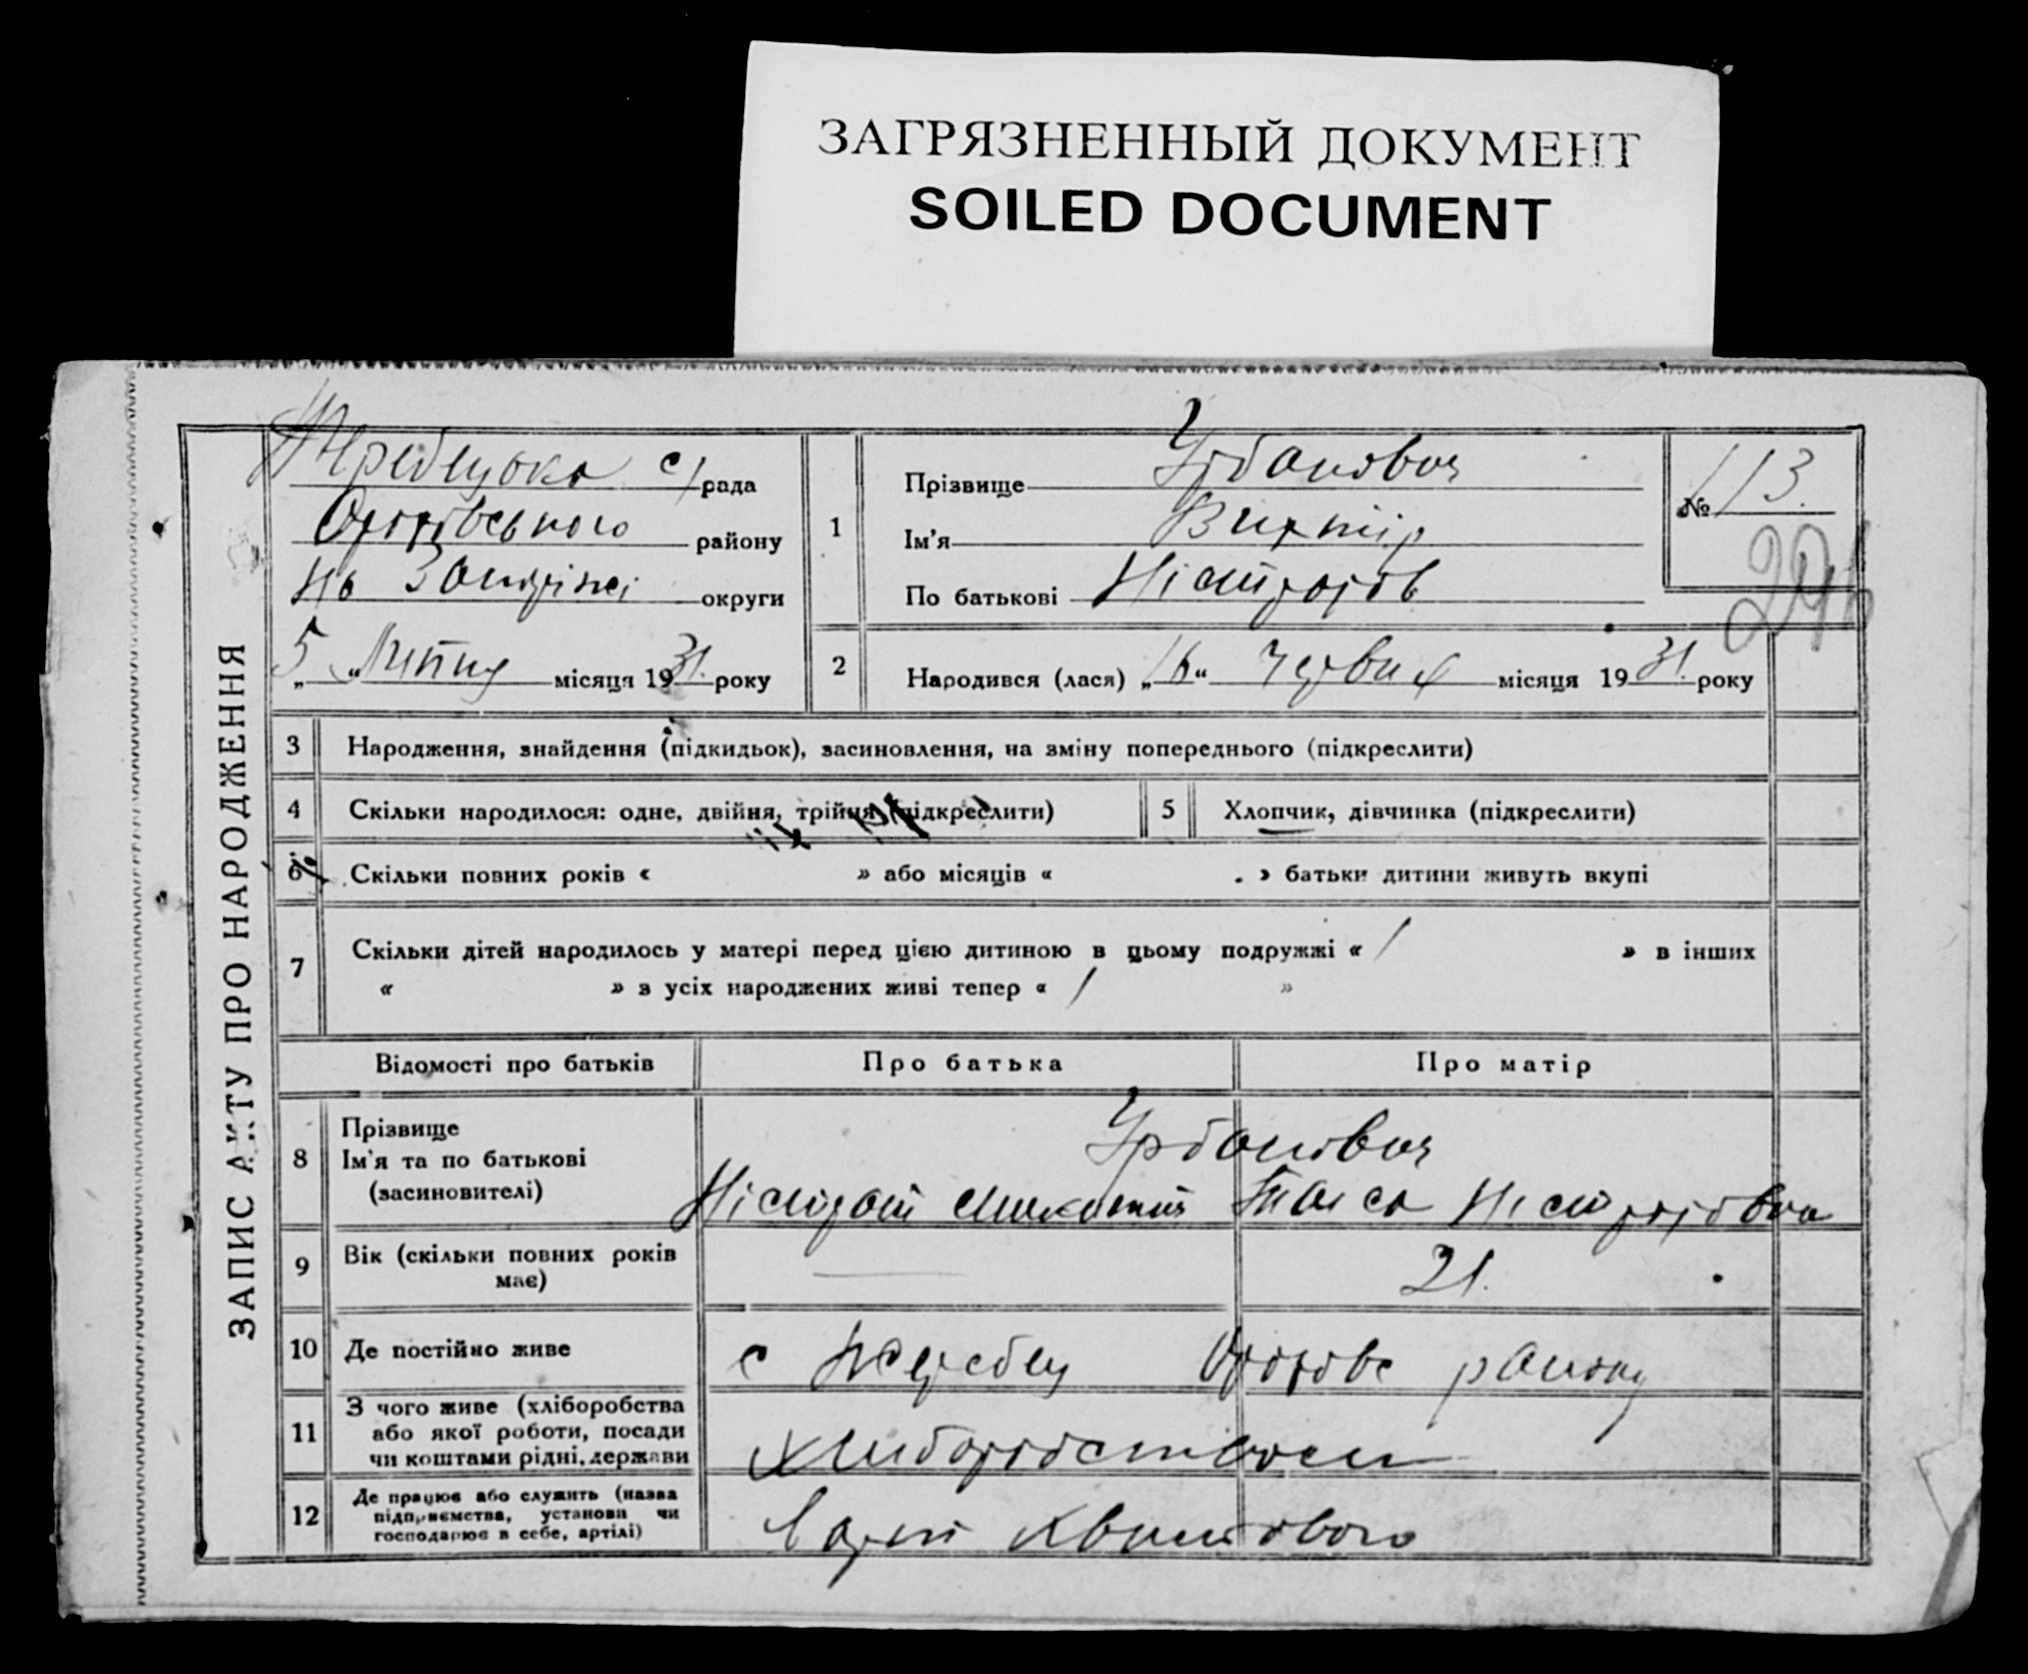 ЗАГРЯЗНЕННЫЙ ДОКУМЕНТ
SOILED DOCUMENT
ЗАПИС АКТУ ПРО НАРОДЖЕННЯ
Жеребецька с/рада
Оріхівського району
на Запоріжжі округи
„5“ Липня місяця 1931 року
1
Прізвище Урбанович
Ім'я Віктір
По батькові
№ 113.
2
Народився (лася) „16“ Червня місяця 1931 року
3 Народження, знайдення (підкидьок), засиновлення, на зміну попереднього (підкреслити)
4 Скільки народилося: одне, двійня, трійня (підкреслити)
5 Хлопчик, дівчинка (підкреслити)
6 Скільки повних років « » або місяців « » батьки дитини живуть вкупі
7 Скільки дітей народилось у матері перед цією дитиною в цьому подружжі « 1 » в інших
« » з усіх народжених живі тепер « 1 »
Відомості про батьків Про батька Про матір
8 Прізвище
Ім'я та по батькові
(засиновителі)
Урбанович
9 Вік (скільки повних років
має)
— 21.
10 Де постійно живе с Жеребец Оріхівс району
11 З чого живе (хліборобства
або якої роботи, посади
чи коштами рідні, держави
Хлиборобством
12 Де працює або служить (назва
підприємства, установи чи
господарює в себе, артілі)